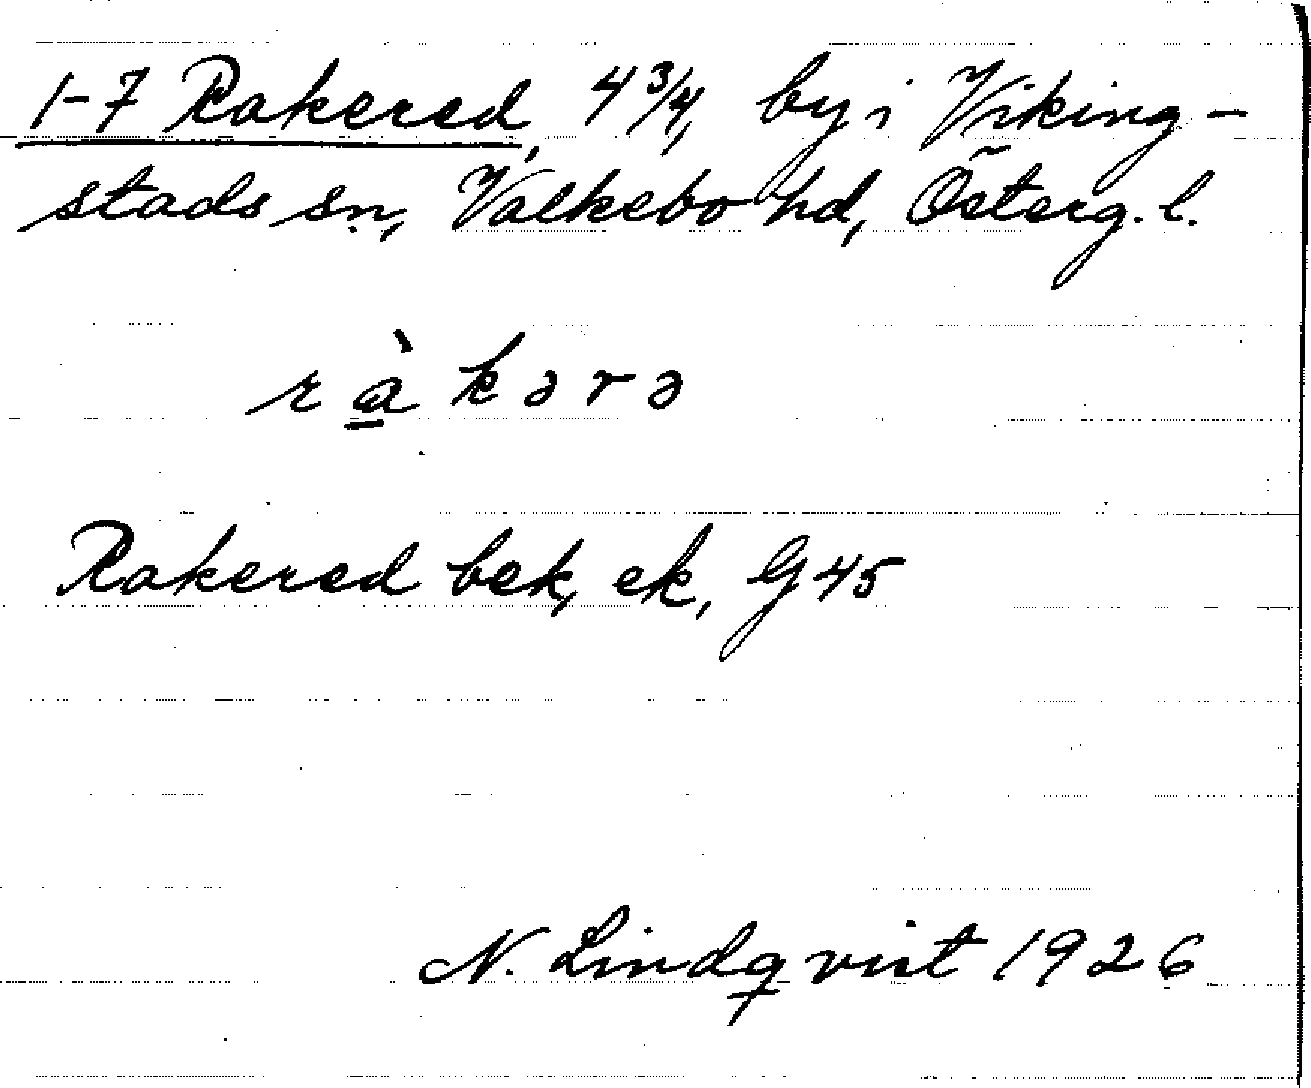 1-7 Rakered, 4 3/4, by i Viking-
stads sn, Valkebo hd, Österg. l.
ràkərə
Rakered bek, ek, G 45
N. Lindqvist 1926